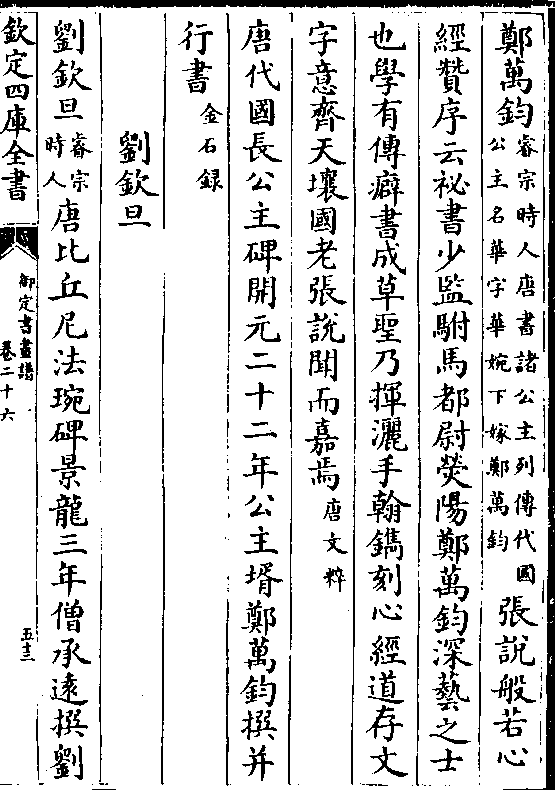 鄭萬鈞睿宗時人唐書諸公主列傳代國公主名華字華婉下嫁鄭萬鈞張說般若心
經贊序云祕書少監駙馬都尉滎陽鄭萬鈞深藝之士
也學有傳癖書成草聖乃揮灑手翰鐫刻心經道存文
字意齊天壤國老張說聞而嘉焉唐文粹
唐代國長公主碑開元二十二年公主壻鄭萬鈞撰并
行書金石録
劉欽旦
劉欽旦睿宗時人唐比丘尼法琬碑景龍三年僧承遠撰劉
欽定四庫全書
御定書畫譜
卷二十六
五十三